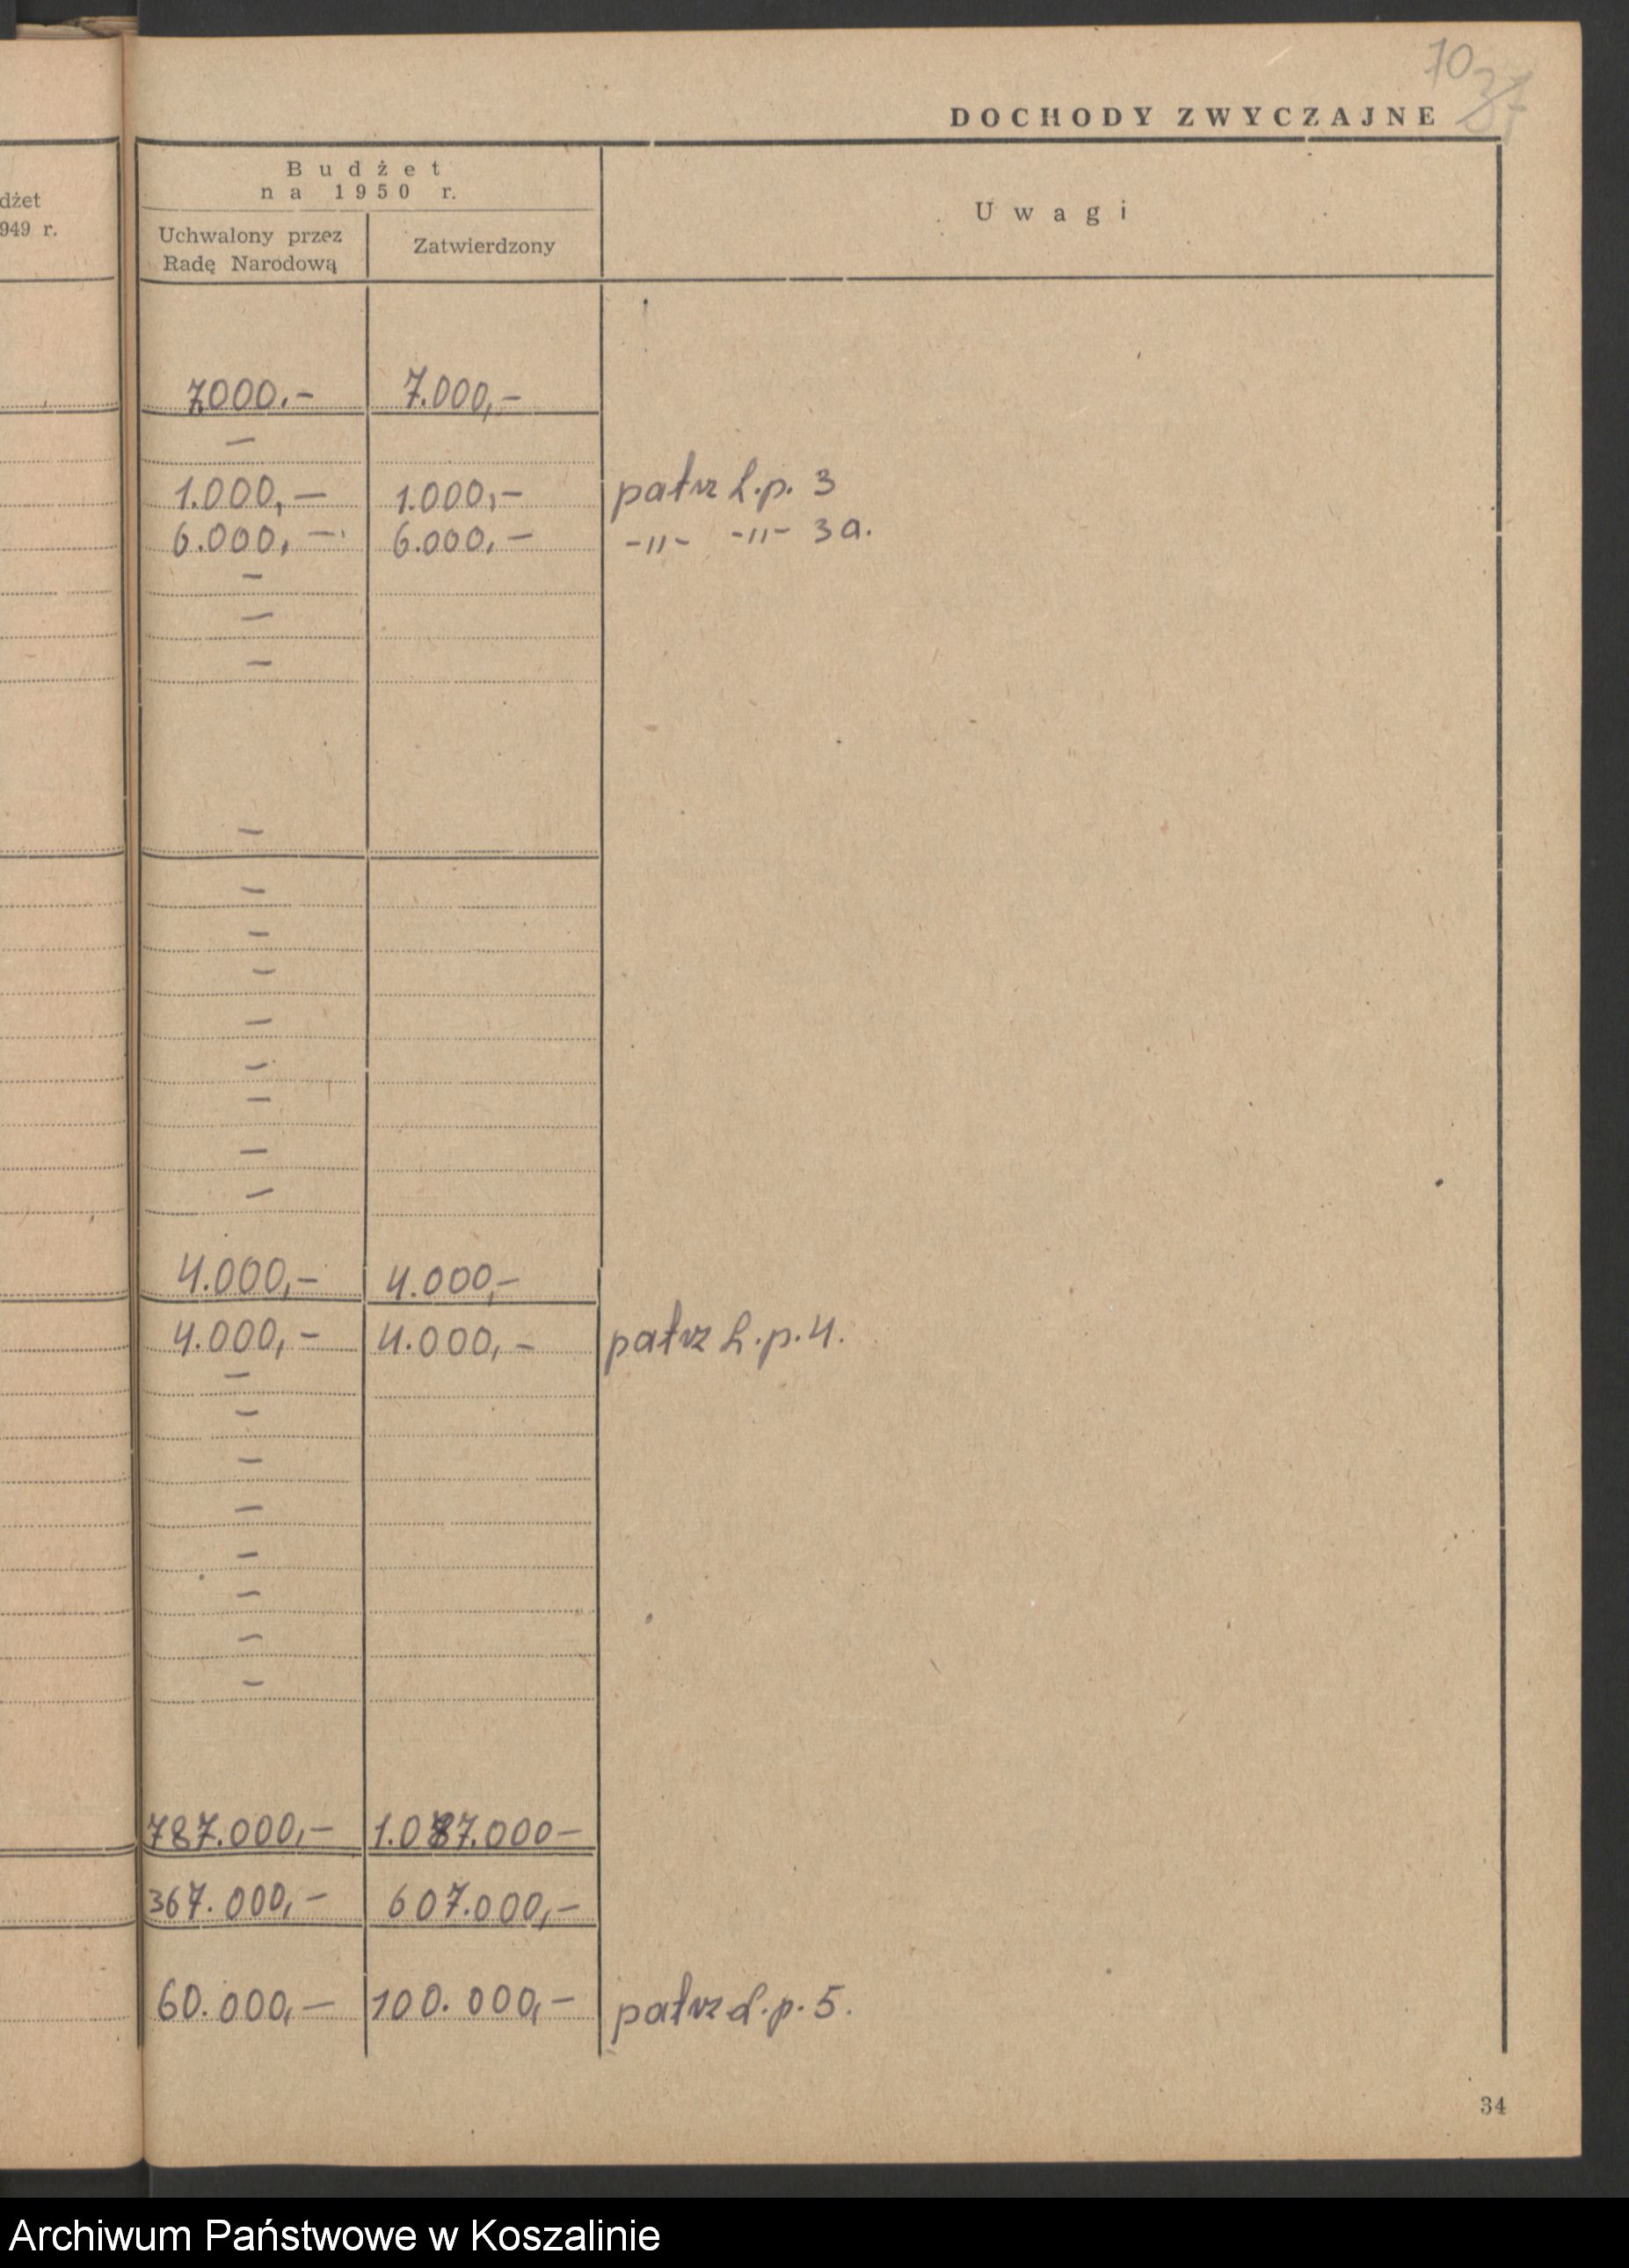 10
37
DOCHODY ZWYCZAJNE
dżet
949 r.
Budżet
na 1950 r.
Uchwalony przez
Radę Narodową
Zatwierdzony
Uwagi
7000.- 7.000,-
-
1.000,- 1.000,- patrz L.p. 3
6.000,- 6.000,- -"- -"- 3a.
-
-
-
-
-
-
-
-
-
-
-
-
4.000,- 4.000,-
4.000,- 4.000,- patrz L.p. 4.
-
-
-
-
-
-
-
-
787.000,- 1.087.000-
367.000,- 607.000,-
60.000,- 100.000,- patrz L.p. 5.
34
Archiwum Państwowe w Koszalinie